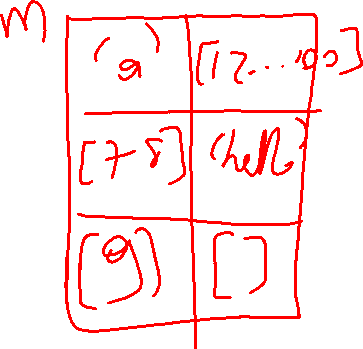 m
'a' [12...100]
[7-8] 'hello'
[9] []